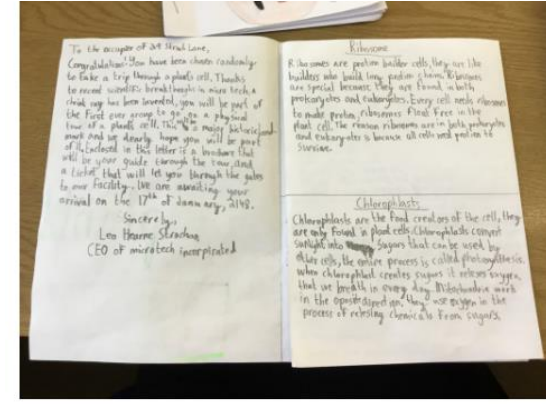 To the occupier of 24 Strud Lane,
Congratulations! You have been chosen randomly
to take a trip through a plants cell. Thanks
to recent scientific breakthroughs in micro tech, a
shink ray has been invented, you will be part of
the first ever group to go on a physical
tour of a plants cell. This will be a major historic land
mark and we dearly hope you will be part
of it. Enclosed in this letter is a brochure that
will be your guide through the tour, and
a ticket that will let you through the gates
to our facility. We are awaiting your
arrival on the 17th of January, 2148.
Sincerely,
Leo Hearne Strachan
CEO of microtech incorpirated
Ribosome
Ribosomes are protien builder cells, they are like
builders who build long protien chains. Ribosomes
are special because they are found in both
prokaryotes and eukaryotes. Every cell needs ribosomes
to make protien, ribosomes float free in the
plant cell. The reason ribosomes are in both prokaryotes
and eukaryotes is because all cells need protien to
survive.
Chloroplasts
Chloroplasts are the food creators of the cell, they
are only found in plant cells. Chloroplasts convert
sunlight into sugars that can be used by
other cells, the entire process is called photosynthesis.
when chloroplast creates sugars it releases oxygen,
that we breath in every day. Mitochondria work
in the oposite direction, they use oxygen in the
process of relesing chemicals from sugars.